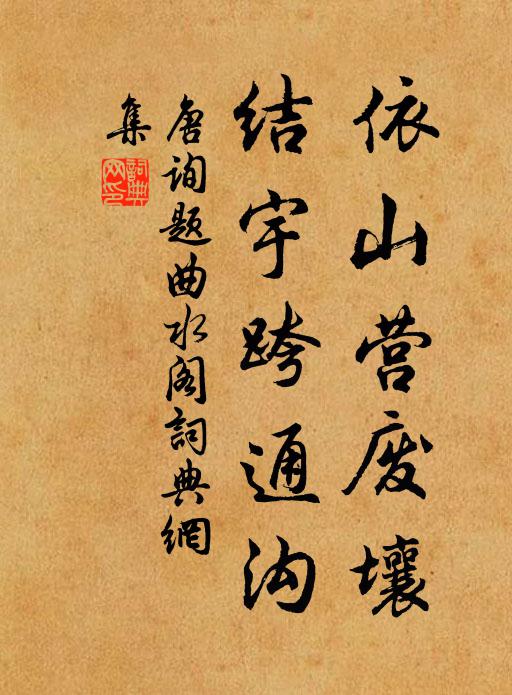 依山营废壤
结宇跨通沟
唐询题曲水阁詞典網
集
詞典
网印